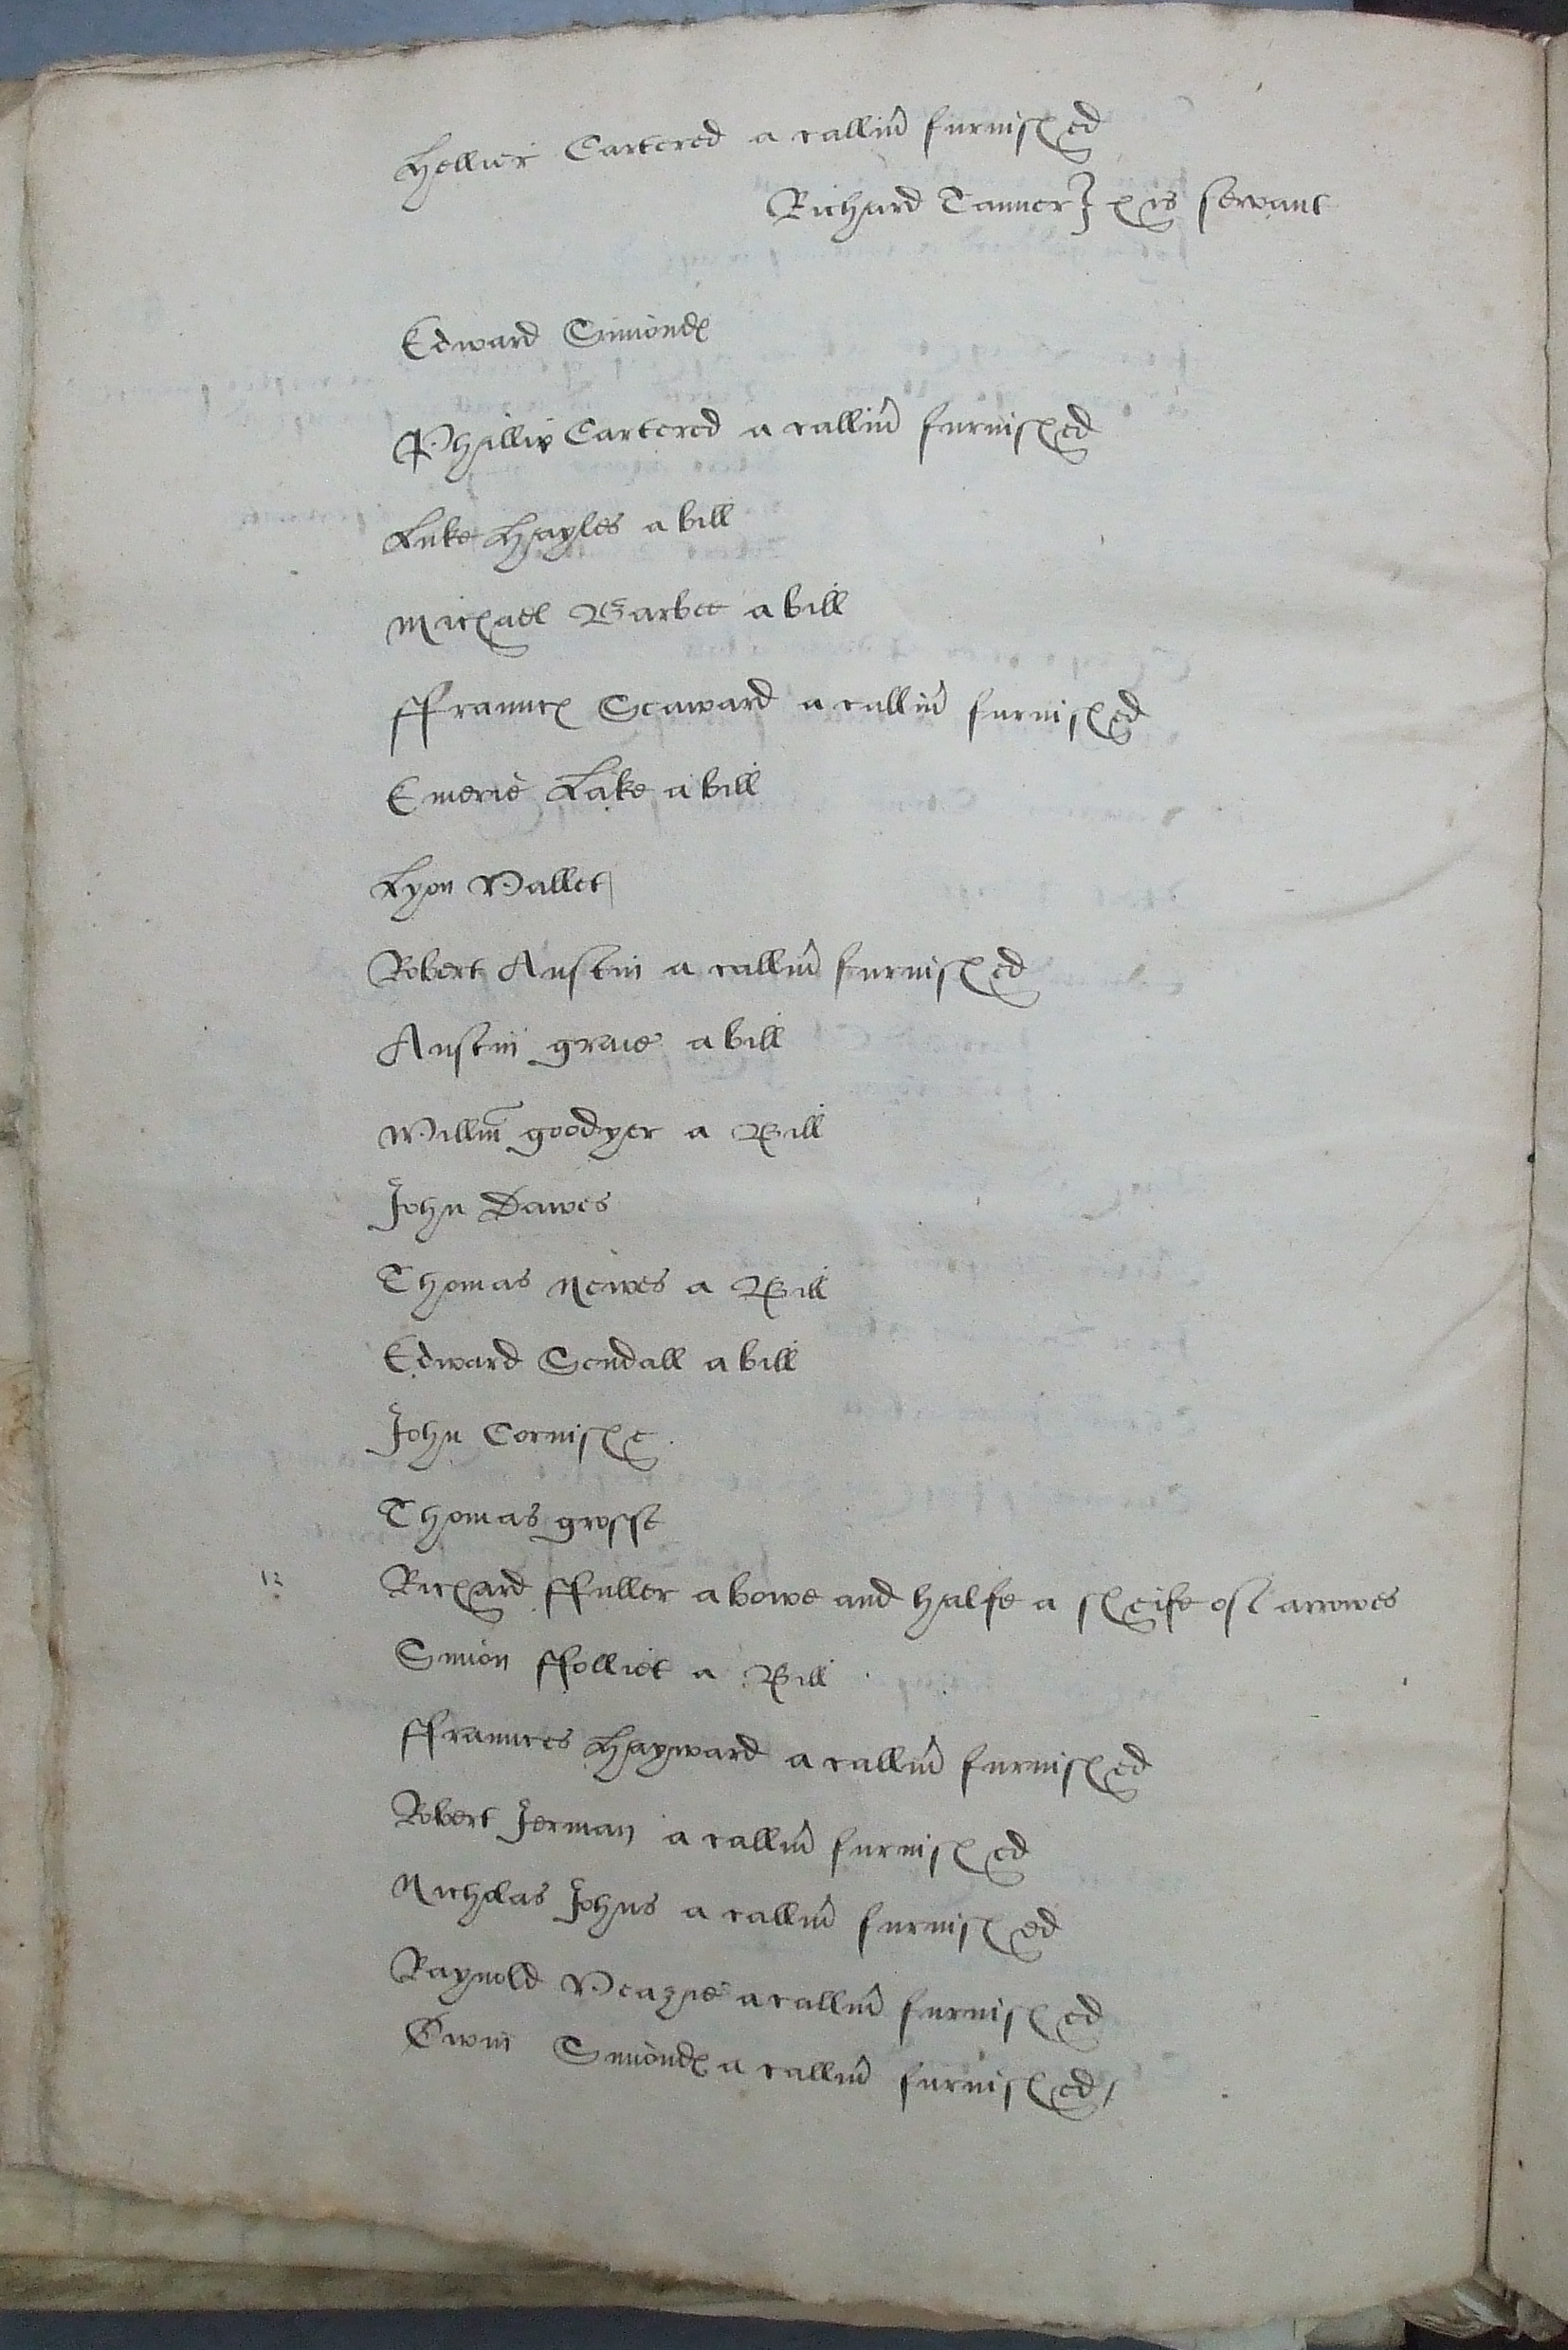 Hellier Cartered a callivr furnished
Richard Tanner } his servant
Edward Simondes
Phillip Cartered a callivr furnished
Luke Hayles a bill
Michael Barbee a bill
ffraunces Seaward a callivr furnished
Emerie Lake a bill
Lyon Vallet
Robert Austin a callivr furnished
Austin graie a bill
Willm goodyer a Bill
John Dawes
Thomas Newes a Bill
Edward Sendall a bill
John Cornishe
Thomas grosse
12 Richard ffuller a bowe and halfe a sheife of arrowes
Simon ffolliet a Bill
ffraunces Hayward a callivr furnished
Robert Jerman a callivr furnished
Nicholas Johns a callivr furnished
Raynold Veazie a callivr furnished
Owin Simondes a callivr furnished